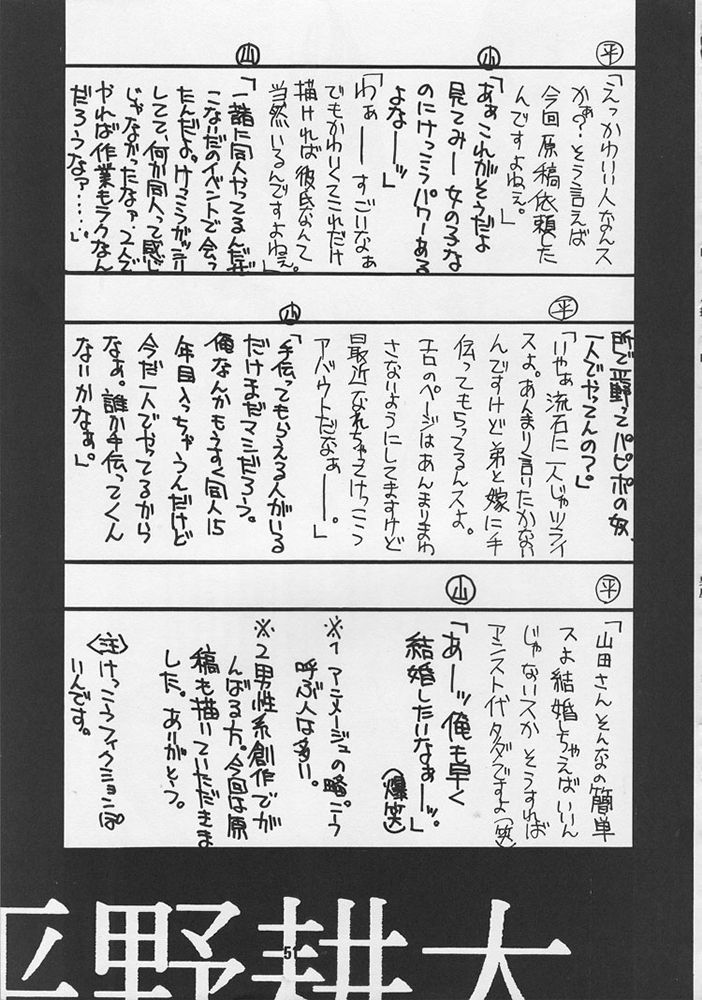 平
「えっかわいい人なんス
かぁ?そう言えば
今回原稿依頼した
んですよねぇ。」
山
「あぁこれがそうだよ
見てみー女の子な
のにけっこうパワーある
よなーーッ」
「わぁーーすごいなぁ
でもかわいくてこれだけ
描ければ彼氏なんて
当然いるんですよねぇ。」
山
「一諸に同人やってるんだぜ
こないだのイベントで会っ
たんだよ。けっこうガッシリ
してて、何か同人って感じ
じゃなかったなァ。2人で
やれば作業もラクなん
だろうなァ……」
所で平野ってパピポの奴、
一人でやってんの?。」
平
「いやぁ流石に一人じゃツライ
スよ。あんまり言いたかない
んですけど弟と嫁に手
伝ってもらってるんスよ。
エロのページはあんまりまわ
さないようにしてますけど
最近なれちゃってけっこう
アバウトだなぁー。」
山
「手伝ってもらえる人がいる
だけまだマシだろう。
俺なんかもうすぐ同人15
年目入っちゃうんだけど
今だ一人でやってるから
なぁ。誰か手伝ってくん
ないかなぁ。」
平
「山田さんそんなの簡単
スよ結婚しちゃえばいいん
じゃないスか そうすれば
アシスト代タダですよ(笑)
山
「あーッ俺も早く
結婚したいなぁーッ。」
(爆笑)
※1 アニメージュの略。こう
呼ぶ人は多い。
※2 男性系創作でが
んばる方。今回は原
稿も描いていただきま
した。ありがとう。
(注)けっこうフィクションぽ
いんです。
平野耕太
51